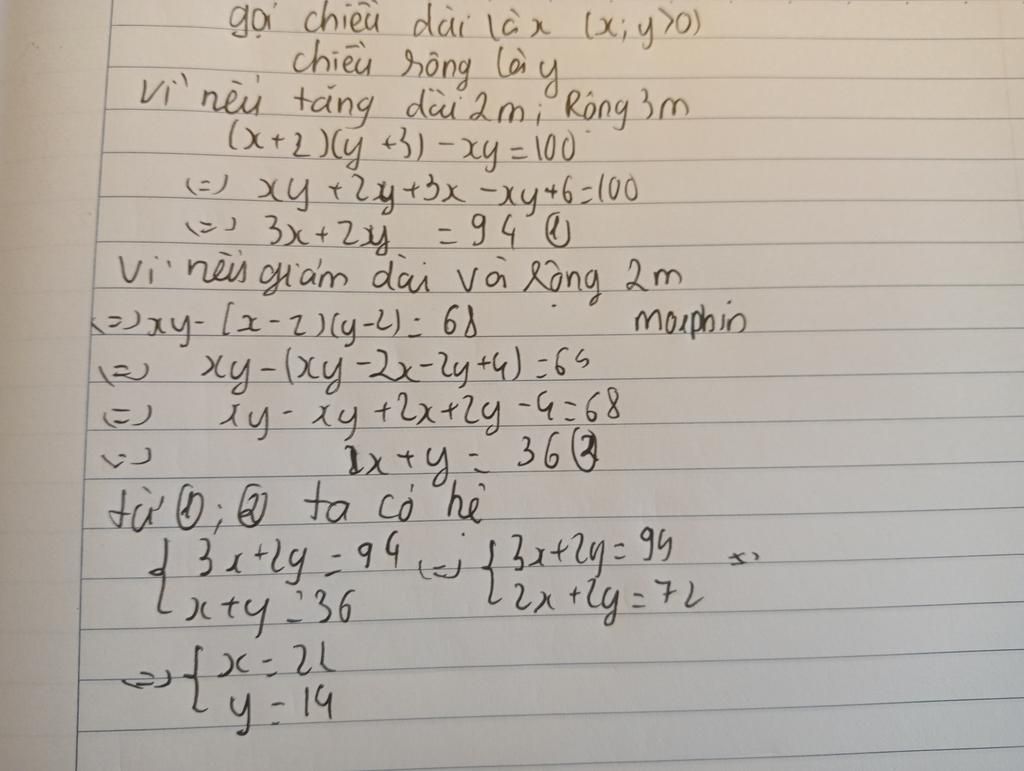 gọi chiều dài là x (x; y>0)
chiều rộng là y
Vì nếu tăng dài 2m; Rộng 3m
(x+2)(y+3) - xy = 100
<=> xy + 2y + 3x - xy + 6 = 100
<=> 3x + 2y = 94 ①
Vì nếu giảm dài và Rộng 2m
<=> xy - (x-2)(y-2) = 68
mouphin
<=> xy - (xy - 2x - 2y + 4) = 68
<=> xy - xy + 2x + 2y - 4 = 68
<=> x + y = 36 ②
từ ①; ② ta có hệ
{ 3x + 2y = 94 <=> { 3x + 2y = 94 <=>
x + y = 36 2x + 2y = 72
<=> { x = 22
y = 14